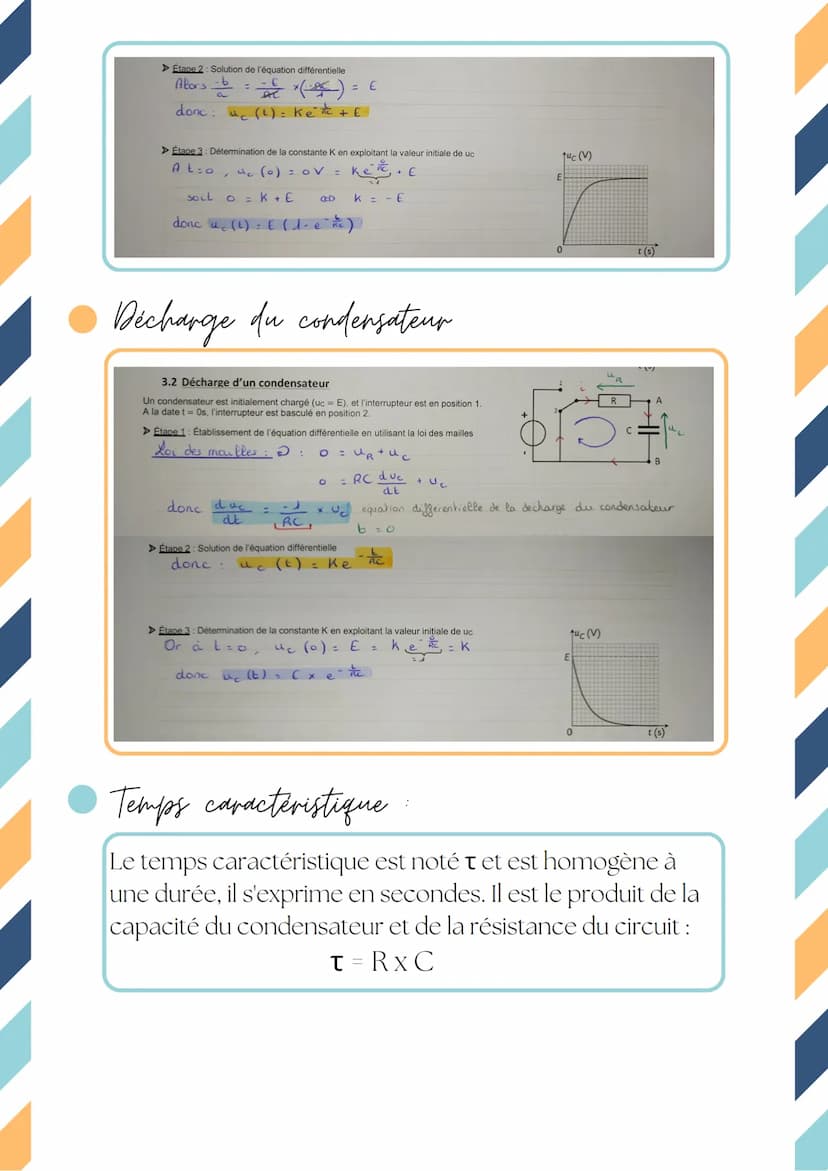 ➤ Étape 2 : Solution de l'équation différentielle
Alors -b/a = -E/RC × (-RC/1) = E
donc : uc (t) = Ke^(-t/RC) + E
➤ Étape 3 : Détermination de la constante K en exploitant la valeur initiale de uc
A t=0, uc (0) = 0V = Ke^(-0/RC) + E
=1
soit 0 = K + E ⇔ K = - E
donc uc (t) = E (1 - e^(-t/RC))
uc (V)
E
0
t (s)
Décharge du condensateur
3.2 Décharge d'un condensateur
Un condensateur est initialement chargé (uc = E), et l'interrupteur est en position 1.
A la date t = 0s, l'interrupteur est basculé en position 2.
➤ Étape 1 : Établissement de l'équation différentielle en utilisant la loi des mailles
Loi des mailles : 0 = uR + uc
0 = RC duc/dt + uc
donc duc/dt = -1/RC × uc équation différentielle de la décharge du condensateur
b = 0
uR
i
R
A
C
uc
B
+
-
➤ Étape 2 : Solution de l'équation différentielle
donc : uc (t) = Ke^(-t/RC)
➤ Étape 3 : Détermination de la constante K en exploitant la valeur initiale de uc
Or à t=0, uc (0) = E = Ke^(-0/RC) = K
=1
donc uc (t) = E × e^(-t/RC)
uc (V)
E
0
t (s)
Temps caractéristique :
Le temps caractéristique est noté τ et est homogène à
une durée, il s'exprime en secondes. Il est le produit de la
capacité du condensateur et de la résistance du circuit :
τ = R x C